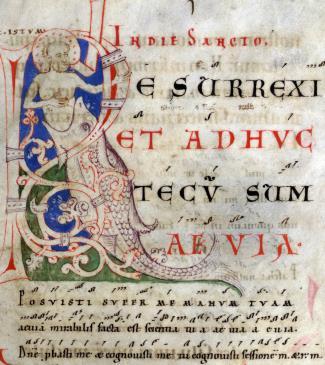 IN DIE SANCTO.
RESURREXI
ET ADHUC
TECŪ SUM
AEVIA.
POSVISTI SVPER ME MANVM TVAM
aevia mirabilis facta est scientia tua aevia e euia.
Dñe pbasti me & cognovisti me tu cognovisti sessionē m.